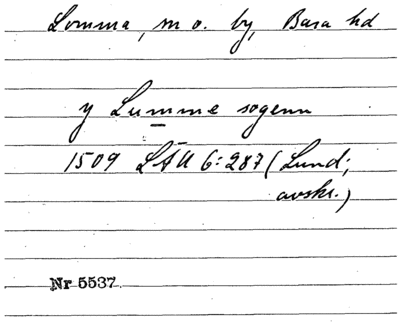 Lomma, m o. by, Bara hd
y Lumme sogenn
1509 LÄU 6:287 (Lund;
avskr.)
Nr 5537